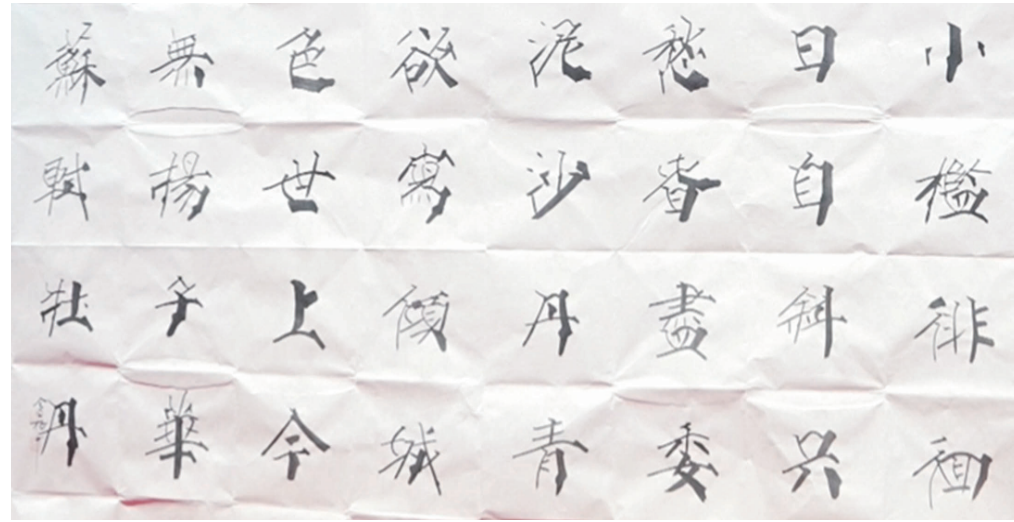 小檻徘徊
日自斜只
愁春盡委
泥沙丹青
欲寫傾城
色世上今
無楊子華
蘇軾牡丹